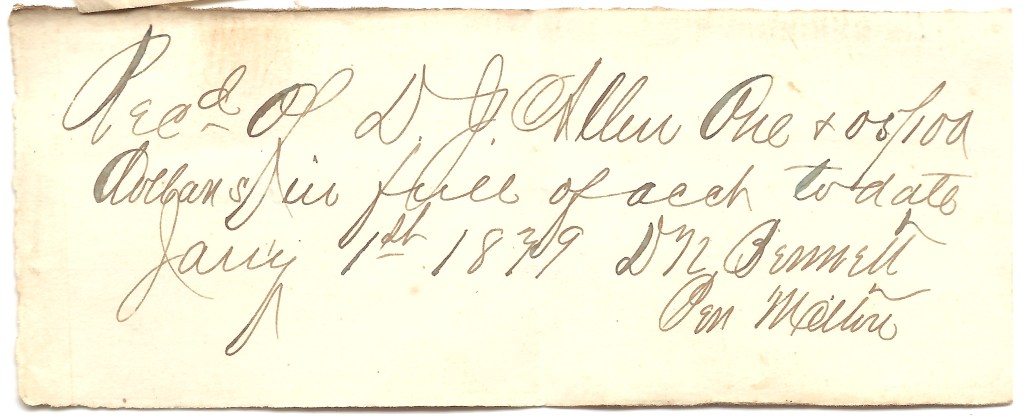 Recd Of D. J. Allen One & 05/100
Dollars in full of acct to date
Jany 1st 1879 D N Bennett
Per Milton